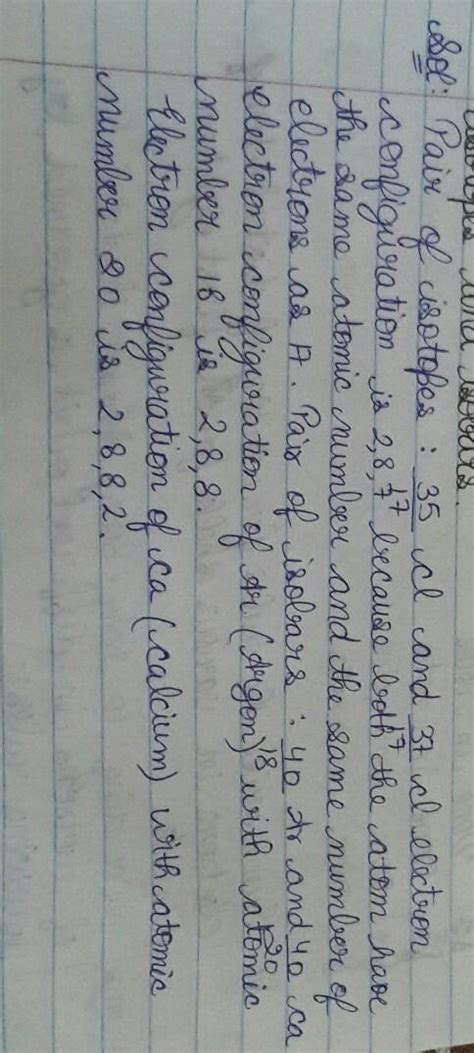 isotopes and isobars.
Sol: Pair of isotopes : 35 cl and 37 cl electron
17 17
configuration is 2,8,7 because both the atom have
the same atomic number and the same number of
electrons as 17. Pair of isobars : 40 Ar and 40 ca
18 20
electron configuration of Ar (Argon) with atomic
number 18 is 2,8,8.
Electron configuration of ca (calcium) with atomic
number 20 is 2,8,8,2.